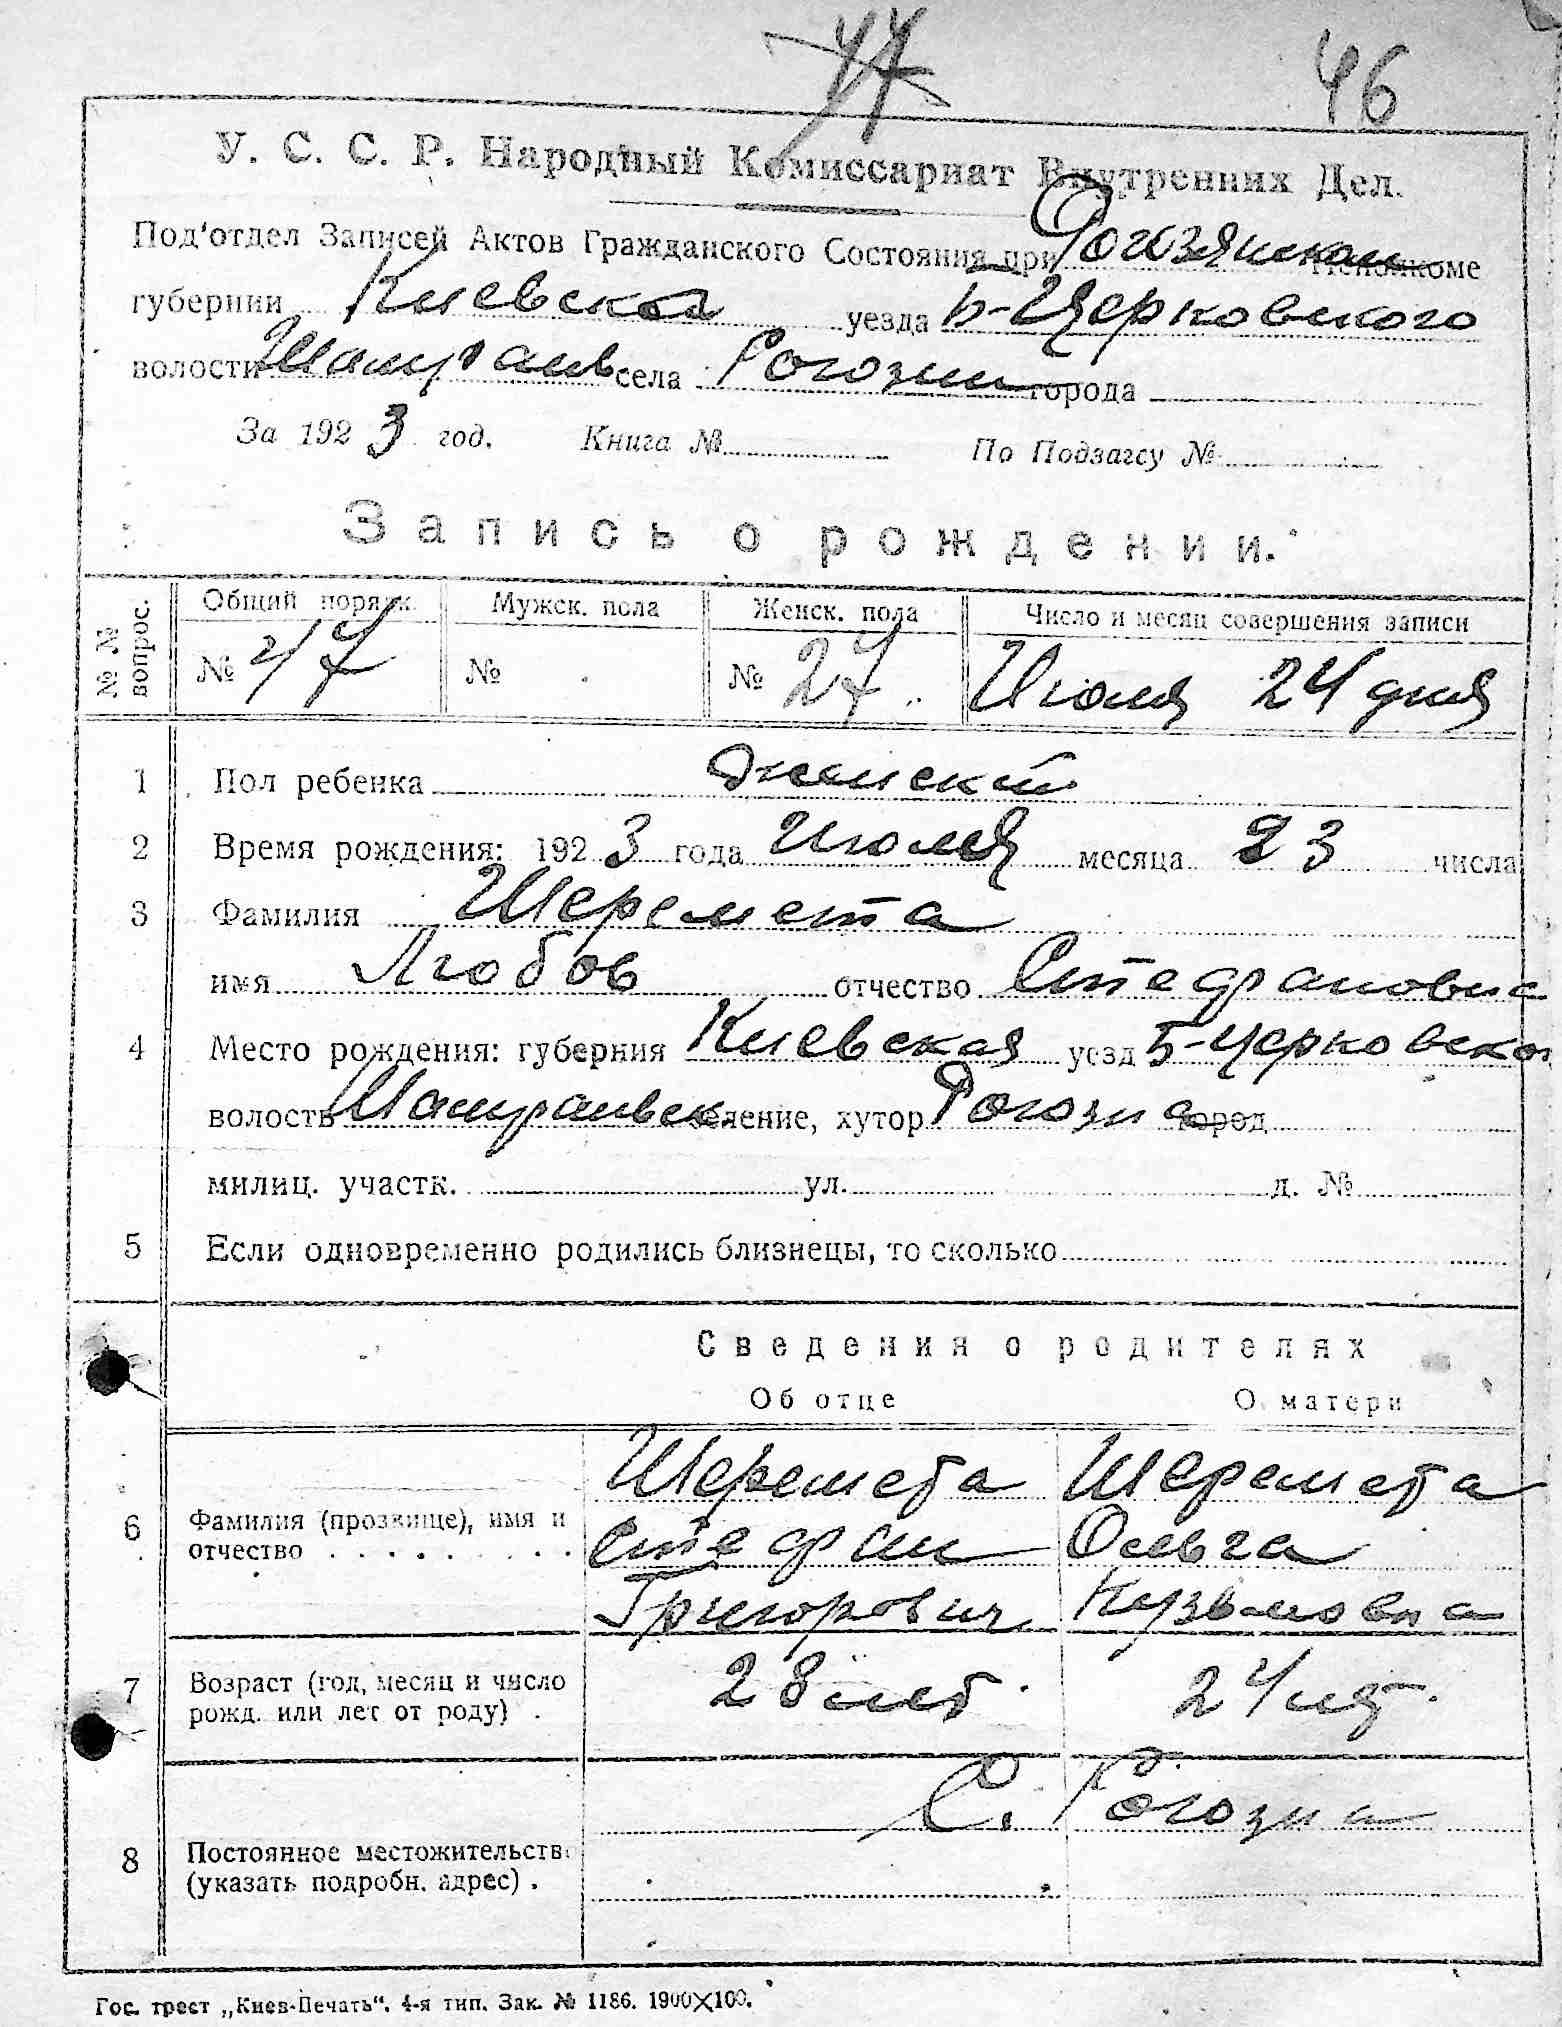 47 46
У. С. С. Р. Народный Комиссариат Внутренних Дел.
Под'отдел Записей Актов Гражданского Состояния при Исполкоме
губернии Киевской уезда Б-Церковского
волости села Рогозни города
За 1923 год. Книга № По Подзагсу №
Запись о рождении.
№№ вопрос. Общий порядк. Мужск. пола Женск. пола Число и месяц совершения записи
№ 47 № № 27. Июля 24 дня
1 Пол ребенка женский
2 Время рождения: 1923 года Июля месяца 23 числа
3 Фамилия Шеремета
имя Любов отчество Стефановна
4 Место рождения: губерния Киевская уезд Б-Церковской
волость селение, хутор Рогозна город
милиц. участк. ул. д. №
5 Если одновременно родились близнецы, то сколько
Сведения о родителях
Об отце О матери
Шеремета Шеремета
6 Фамилия (прозвище), имя и Стефан Ольга
отчество Григорович Кузьмовна
7 Возраст (год, месяц и число 28 лет. 24 лет.
рожд. или лет от роду) .
С. Рогозна
8 Постоянное местожительство
(указать подробн. адрес) .
Гос. трест „Киев-Печать“. 4-я тип. Зак. № 1186. 1900×100.